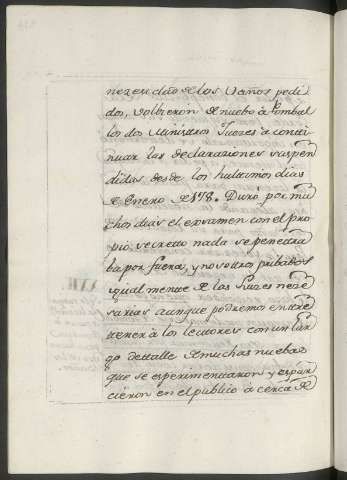 nezesidad de los baños pedi
dos, volbieron de nuebo à Pombal
los dos Ministros Juezes à conti
nuar las declaraziones suspen
didas desde los hultimos dias
de Enero de 178. Duró por mu
chos dias el exsamen con el pro
pio secretto nada se penetra
ba por fuera, y nosottros pribados
igualmente de las Luzes neze
sarias aunque podremos entre
tener à los lectores con un lar
go dettalle de muchas nuebas
que se esperimentaron y espar
cieron en el publico à cerca de